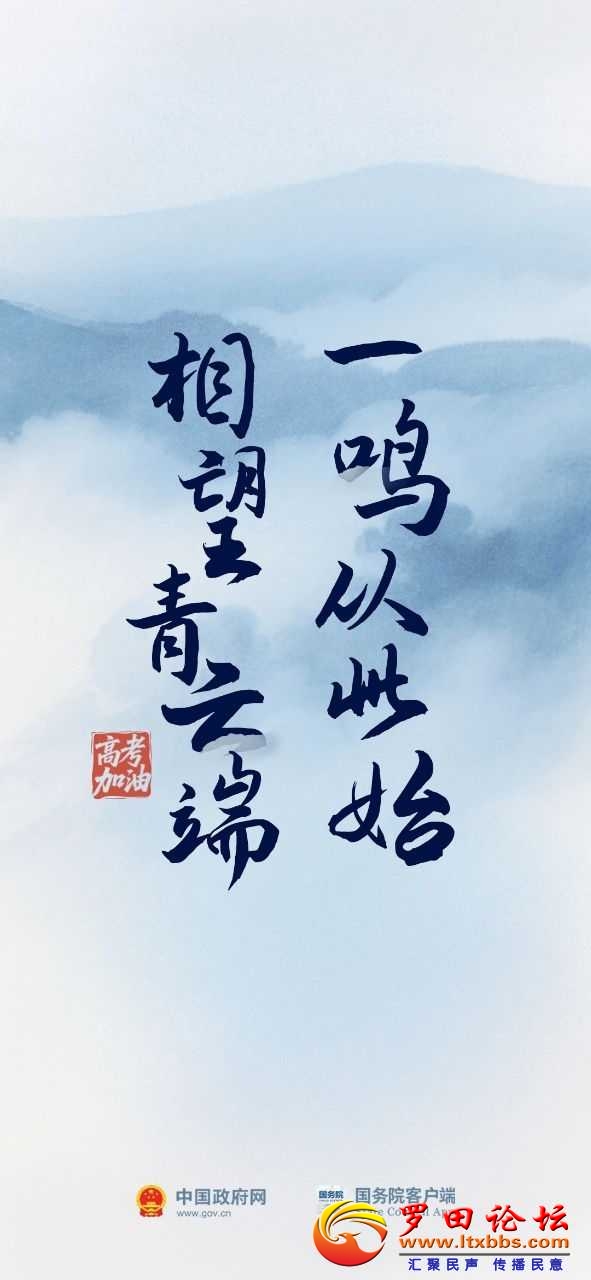 一鸣从此始
相望青云端
高考
加油
中国政府网
www.gov.cn
国务院
国务院客户端
罗田论坛
www.ltxbbs.com
汇聚民声 传播民意